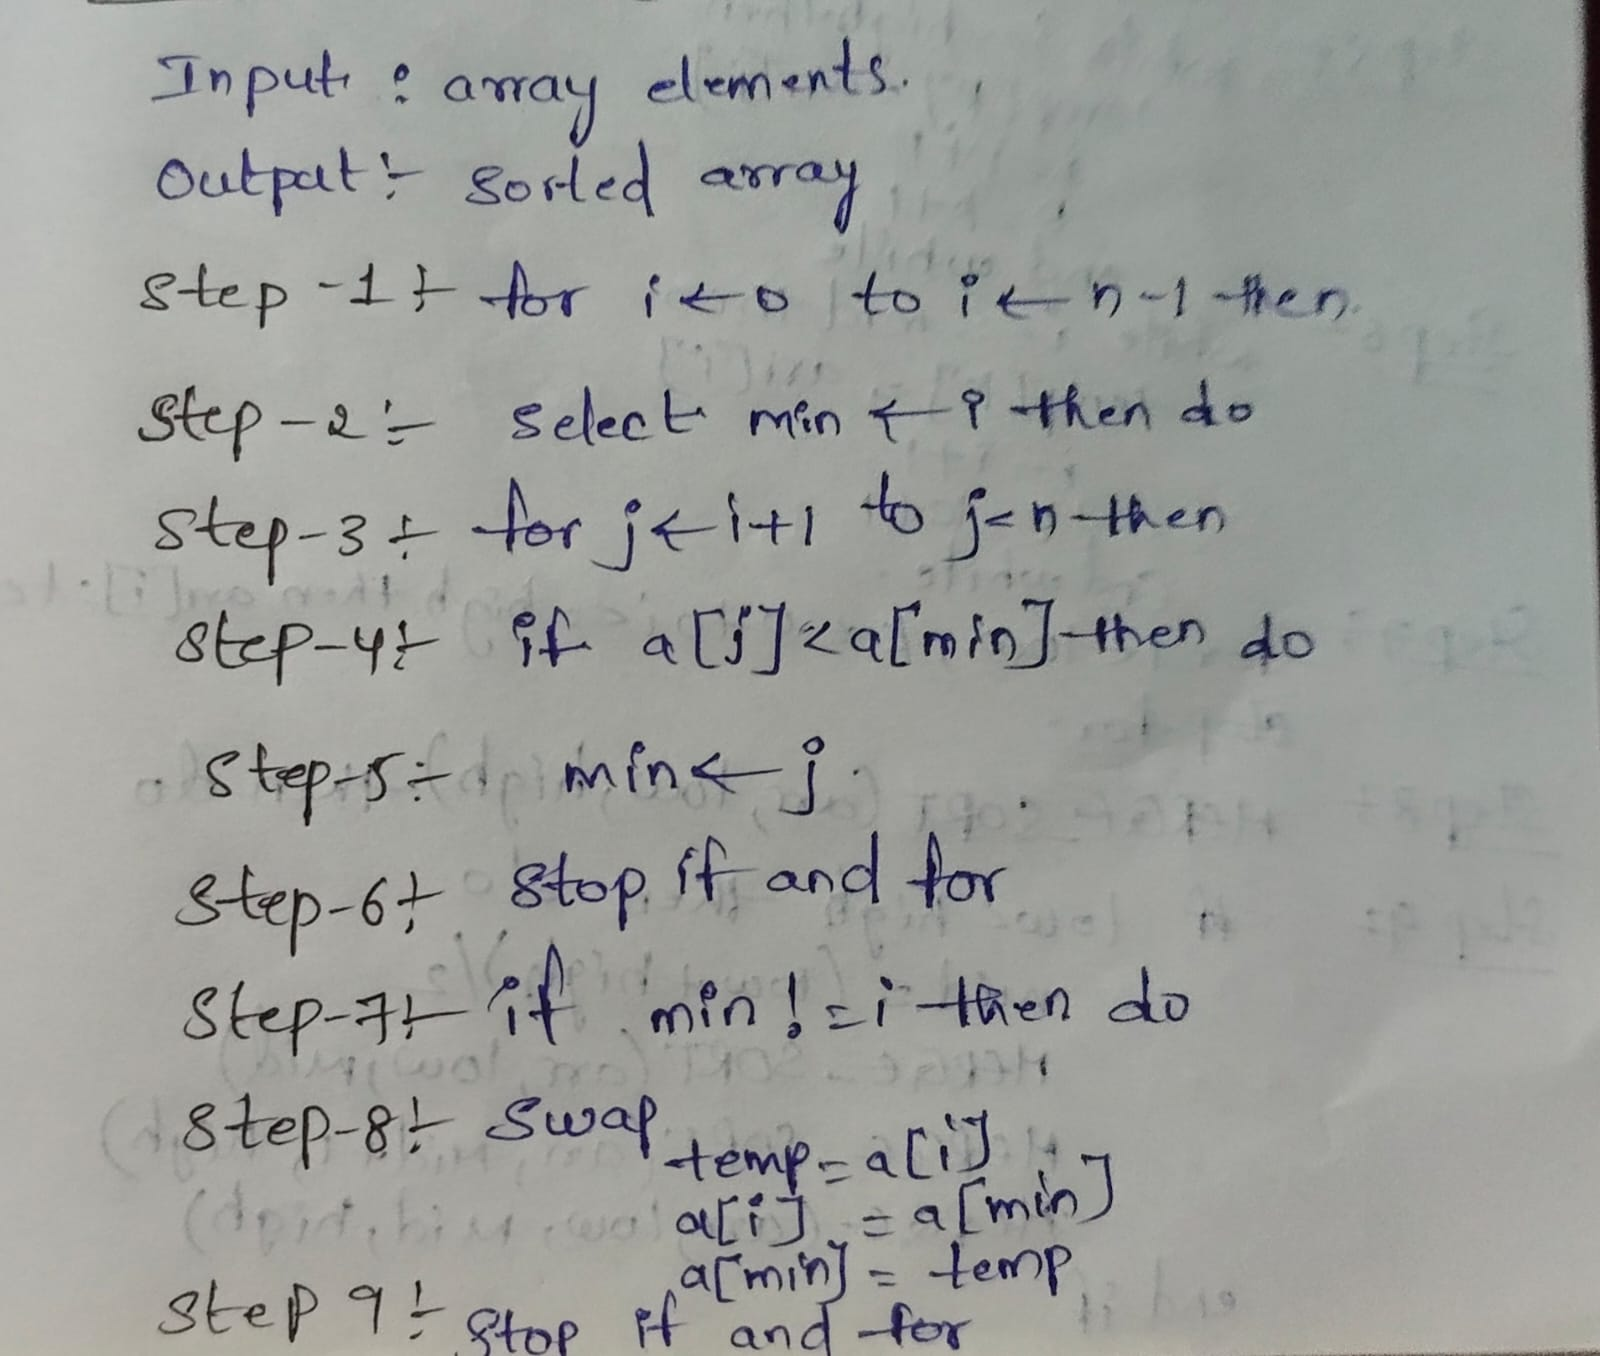 Input : array elements.
Output :- Sorted array
Step-1 :- for i ← 0 to i ← n-1 then
Step-2 :- Select min ← i then do
Step-3 :- for j ← i+1 to j<n then
Step-4 :- if a[j] < a[min] then do
Step-5 :- min ← j
Step-6 :- Stop if and for
Step-7 :- if min != i then do
Step-8 :- Swap temp = a[i]
a[i] = a[min]
a[min] = temp
Step 9 :- Stop if and for